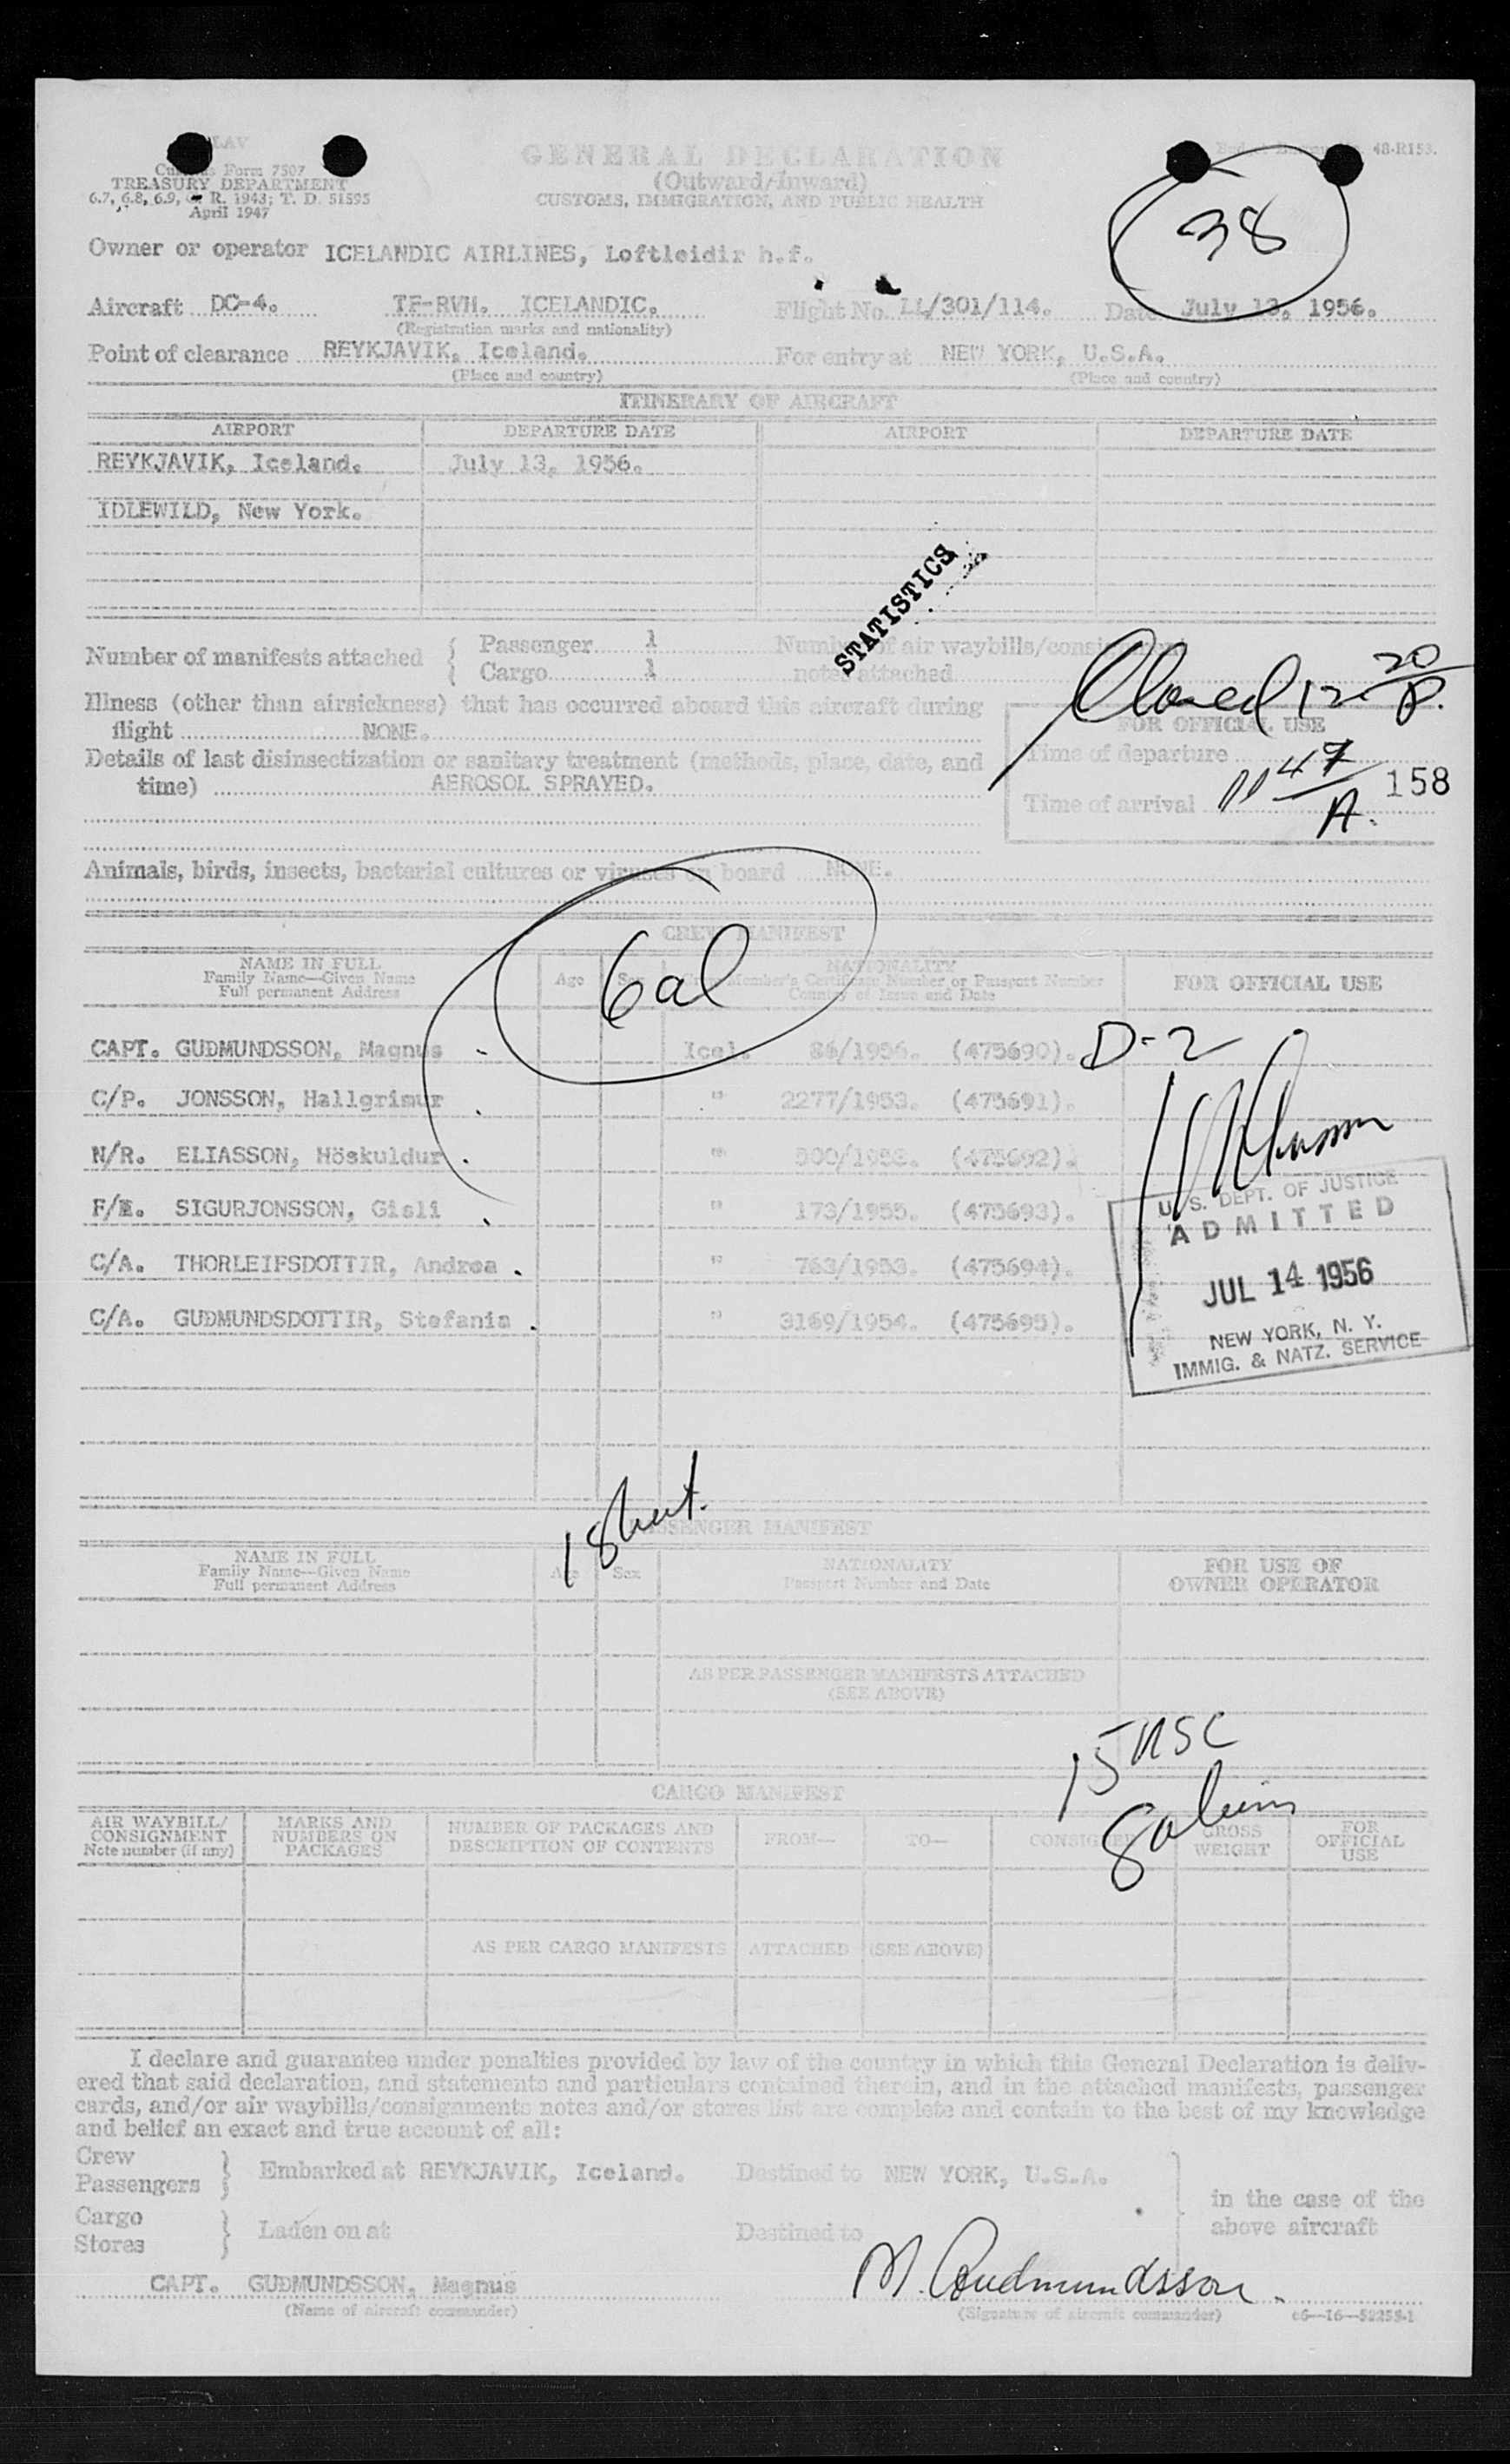 GENERAL DECLARATION
(Outward/Inward)
CUSTOMS, IMMIGRATION, AND PUBLIC HEALTH
Form 7507
TREASURY DEPARTMENT
6.7, 6.8, 6.9, R. 1943; T. D. 51595
April 1947
48-R153.
38
Owner or operator ICELANDIC AIRLINES, Loftleidir h.f.
Aircraft DC-4. TF-RVH. ICELANDIC. Flight No. LL/301/114. Date July 13, 1956.
(Registration marks and nationality)
Point of clearance REYKJAVIK, Iceland. For entry at NEW YORK, U.S.A.
(Place and country) (Place and country)
ITINERARY OF AIRCRAFT
AIRPORT DEPARTURE DATE AIRPORT DEPARTURE DATE
REYKJAVIK, Iceland. July 13, 1956.
IDLEWILD, New York.
STATISTICS
Number of manifests attached { Passenger 1 Number of air waybills/consignment
Cargo 1 notes attached
Closed 12 20/P.
Illness (other than airsickness) that has occurred aboard this aircraft during
flight NONE.
FOR OFFICIAL USE
Details of last disinsectization or sanitary treatment (methods, place, date, and
time) AEROSOL SPRAYED.
Time of departure
Time of arrival 11 47/A. 158
Animals, birds, insects, bacterial cultures or viruses on board NONE.
CREW MANIFEST
6al
NAME IN FULL
Family Name—Given Name
Full permanent Address
Age Sex
NATIONALITY
Crew Member's Certificate Number or Passport Number
Country of Issue and Date
FOR OFFICIAL USE
CAPT. GUDMUNDSSON, Magnus Icel. 86/1956. (475690). D-2
C/P. JONSSON, Hallgrimur " 2277/1953. (475691).
N/R. ELIASSON, Höskuldur " (475692).
F/E. SIGURJONSSON, Gisli " 173/1955. (475693).
C/A. THORLEIFSDOTTIR, Andrea " 763/1953. (475694).
C/A. GUDMUNDSDOTTIR, Stefania " 3169/1954. (475695).
U. S. DEPT. OF JUSTICE
ADMITTED
JUL 14 1956
NEW YORK, N. Y.
IMMIG. & NATZ. SERVICE
PASSENGER MANIFEST
NAME IN FULL
Family Name—Given Name
Full permanent Address
Age Sex
NATIONALITY
Passport Number and Date
FOR USE OF
OWNER OPERATOR
AS PER PASSENGER MANIFESTS ATTACHED
(SEE ABOVE)
15 USC
8 aliens
CARGO MANIFEST
AIR WAYBILL/
CONSIGNMENT
Note number (if any)
MARKS AND
NUMBERS ON
PACKAGES
NUMBER OF PACKAGES AND
DESCRIPTION OF CONTENTS
FROM— TO— CONSIGNEE
GROSS
WEIGHT
FOR
OFFICIAL
USE
AS PER CARGO MANIFESTS ATTACHED (SEE ABOVE)
I declare and guarantee under penalties provided by law of the country in which this General Declaration is deliv-
ered that said declaration, and statements and particulars contained therein, and in the attached manifests, passenger
cards, and/or air waybills/consignments notes and/or stores list are complete and contain to the best of my knowledge
and belief an exact and true account of all:
Crew
Passengers } Embarked at REYKJAVIK, Iceland. Destined to NEW YORK, U.S.A.
Cargo
Stores } Laden on at Destined to
in the case of the
above aircraft
CAPT. GUDMUNDSSON, Magnus M. Gudmundsson.
(Name of aircraft commander) (Signature of aircraft commander)